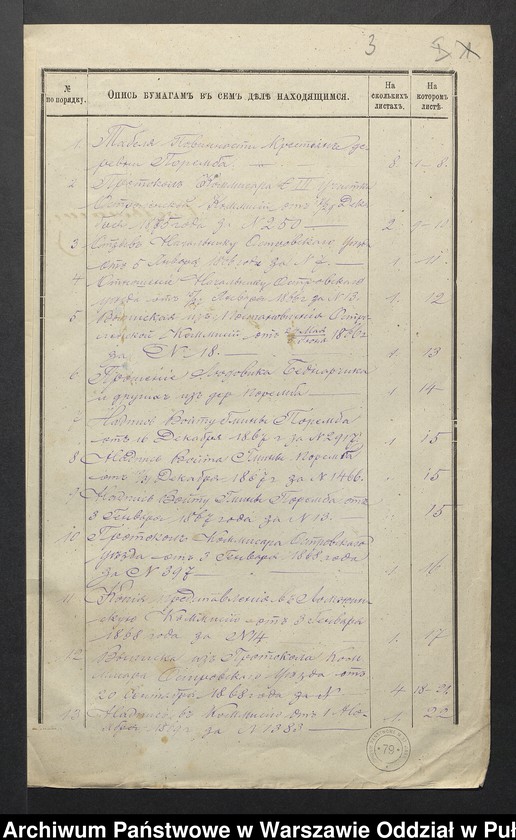 3
№ по порядку.
Опись бумагамъ въ семъ дѣлѣ находящимся.
На сколькихъ листахъ.
На которомъ листѣ.
1. Табель Повинности Крестьянъ де-
ревни Поремба. — 8 1–8.
2 Протоколъ Коммисара III участка
Коммисіи отъ Дека-
года за № 250 — 2
3 Начальнику Островскаго
отъ 5 Января за № 7. — 1 11.
4 Отношеніе Начальнику Островскаго
уѣзда отъ Января 1866 г за № 13. 1 12
5 Выписка изъ Постановленія Остро-
Коммисіи отъ Мая Іюня 1866 г
за № 18. — 1 13
6 Прошеніе Людовика Беднарчика
и другихъ изъ дер Поремба — 1 14
7 Надпись Войту Гмины Поремба
отъ 16 Декабря 1867 г за № 2917 1 15
8 Надпись Войта Гмины Поремба
отъ Декабря 1867 г за № 1466. 15
9 Надпись Войту Гмины Поремба отъ
3 Генваря года за № 13. 15
10 Протоколъ Коммисара Островскаго
уѣзда отъ 3 Генваря 1868 года
за № 397 — 1 16
11 Копія представленія въ Ломжин-
скую Коммисію отъ 3 Генваря
1868 года за № 14 1. 17
12 Выписка изъ Протокола Ком-
мисара Островскаго Уѣзда отъ
20 Сентября 1868 года за № 4 18–21
13. Надпись въ Коммисію отъ 1
за № 1383 — 1. 22
79
Archiwum Państwowe w Warszawie Oddział w Puł